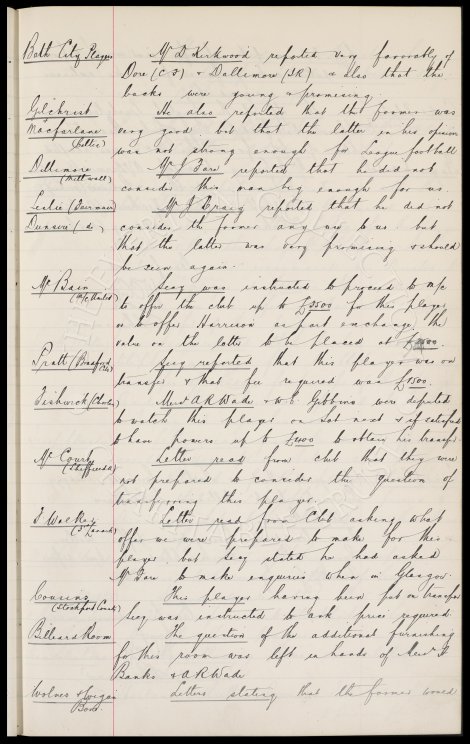 Bath City Players Mr D Kirkwood reported very favorably of
Dore (C.F) & Dallimore (I.R) & also that the
backs were young & promising.
Gilchrist He also reported that the former was
Macfarlane very good, but that the latter in his opinion
(Celtic)
was not strong enough for League football
Mr J Fare reported that he did not
(Millwall)
consider this man big enough for us
Leslie Mr J Craig reported that he did not
consider the former any use to us but
that the latter was very promising & should
be seen again.
Mc Bain Secy was instructed to proceed to M/c
(M/c United)
to offer the club up to £3500 for this player
or to offer Harrison as part exchange, the
value on the latter to be placed at
Pratt (Bradford City) Secy reported that this player was on
transfer & that fee required was £1500
Fishwick Messrs A R Wade & W C Gibbins were deputed
to watch this player on Sat next & if satisfied
to have powers up to to obtain his transfer
Mc Court Letter read from club that they were
(Sheffield U)
not prepared to consider the question of
transferring this player.
T Walker Letter read from Club asking what
(T Lanark)
offer we were prepared to make for this
player but Secy stated he had asked
Mr Fare to make enquiries when in Glasgow.
Cousins This player having been put on transfer
(Stockport County)
Secy was instructed to ask price required.
Billiard Room The question of the additional furnishing
for this room was left in hands of Messrs
Banks & A R Wade
Wolves & Wigan Letters stating that the former would
Boro.